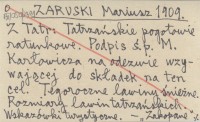 ZARUSKI Mariusz 1909.
Z Tatr. Tatrzańskie pogotowie
ratunkowe. Podpis ś.p. M.
Karłowicza na odezwie wzy-
wającej do składek na ten
cel. Tegoroczne lawiny śnieżne.
Rozmiary lawin tatrzańskich.
Wskazówki turystyczne. — „Zakopane"